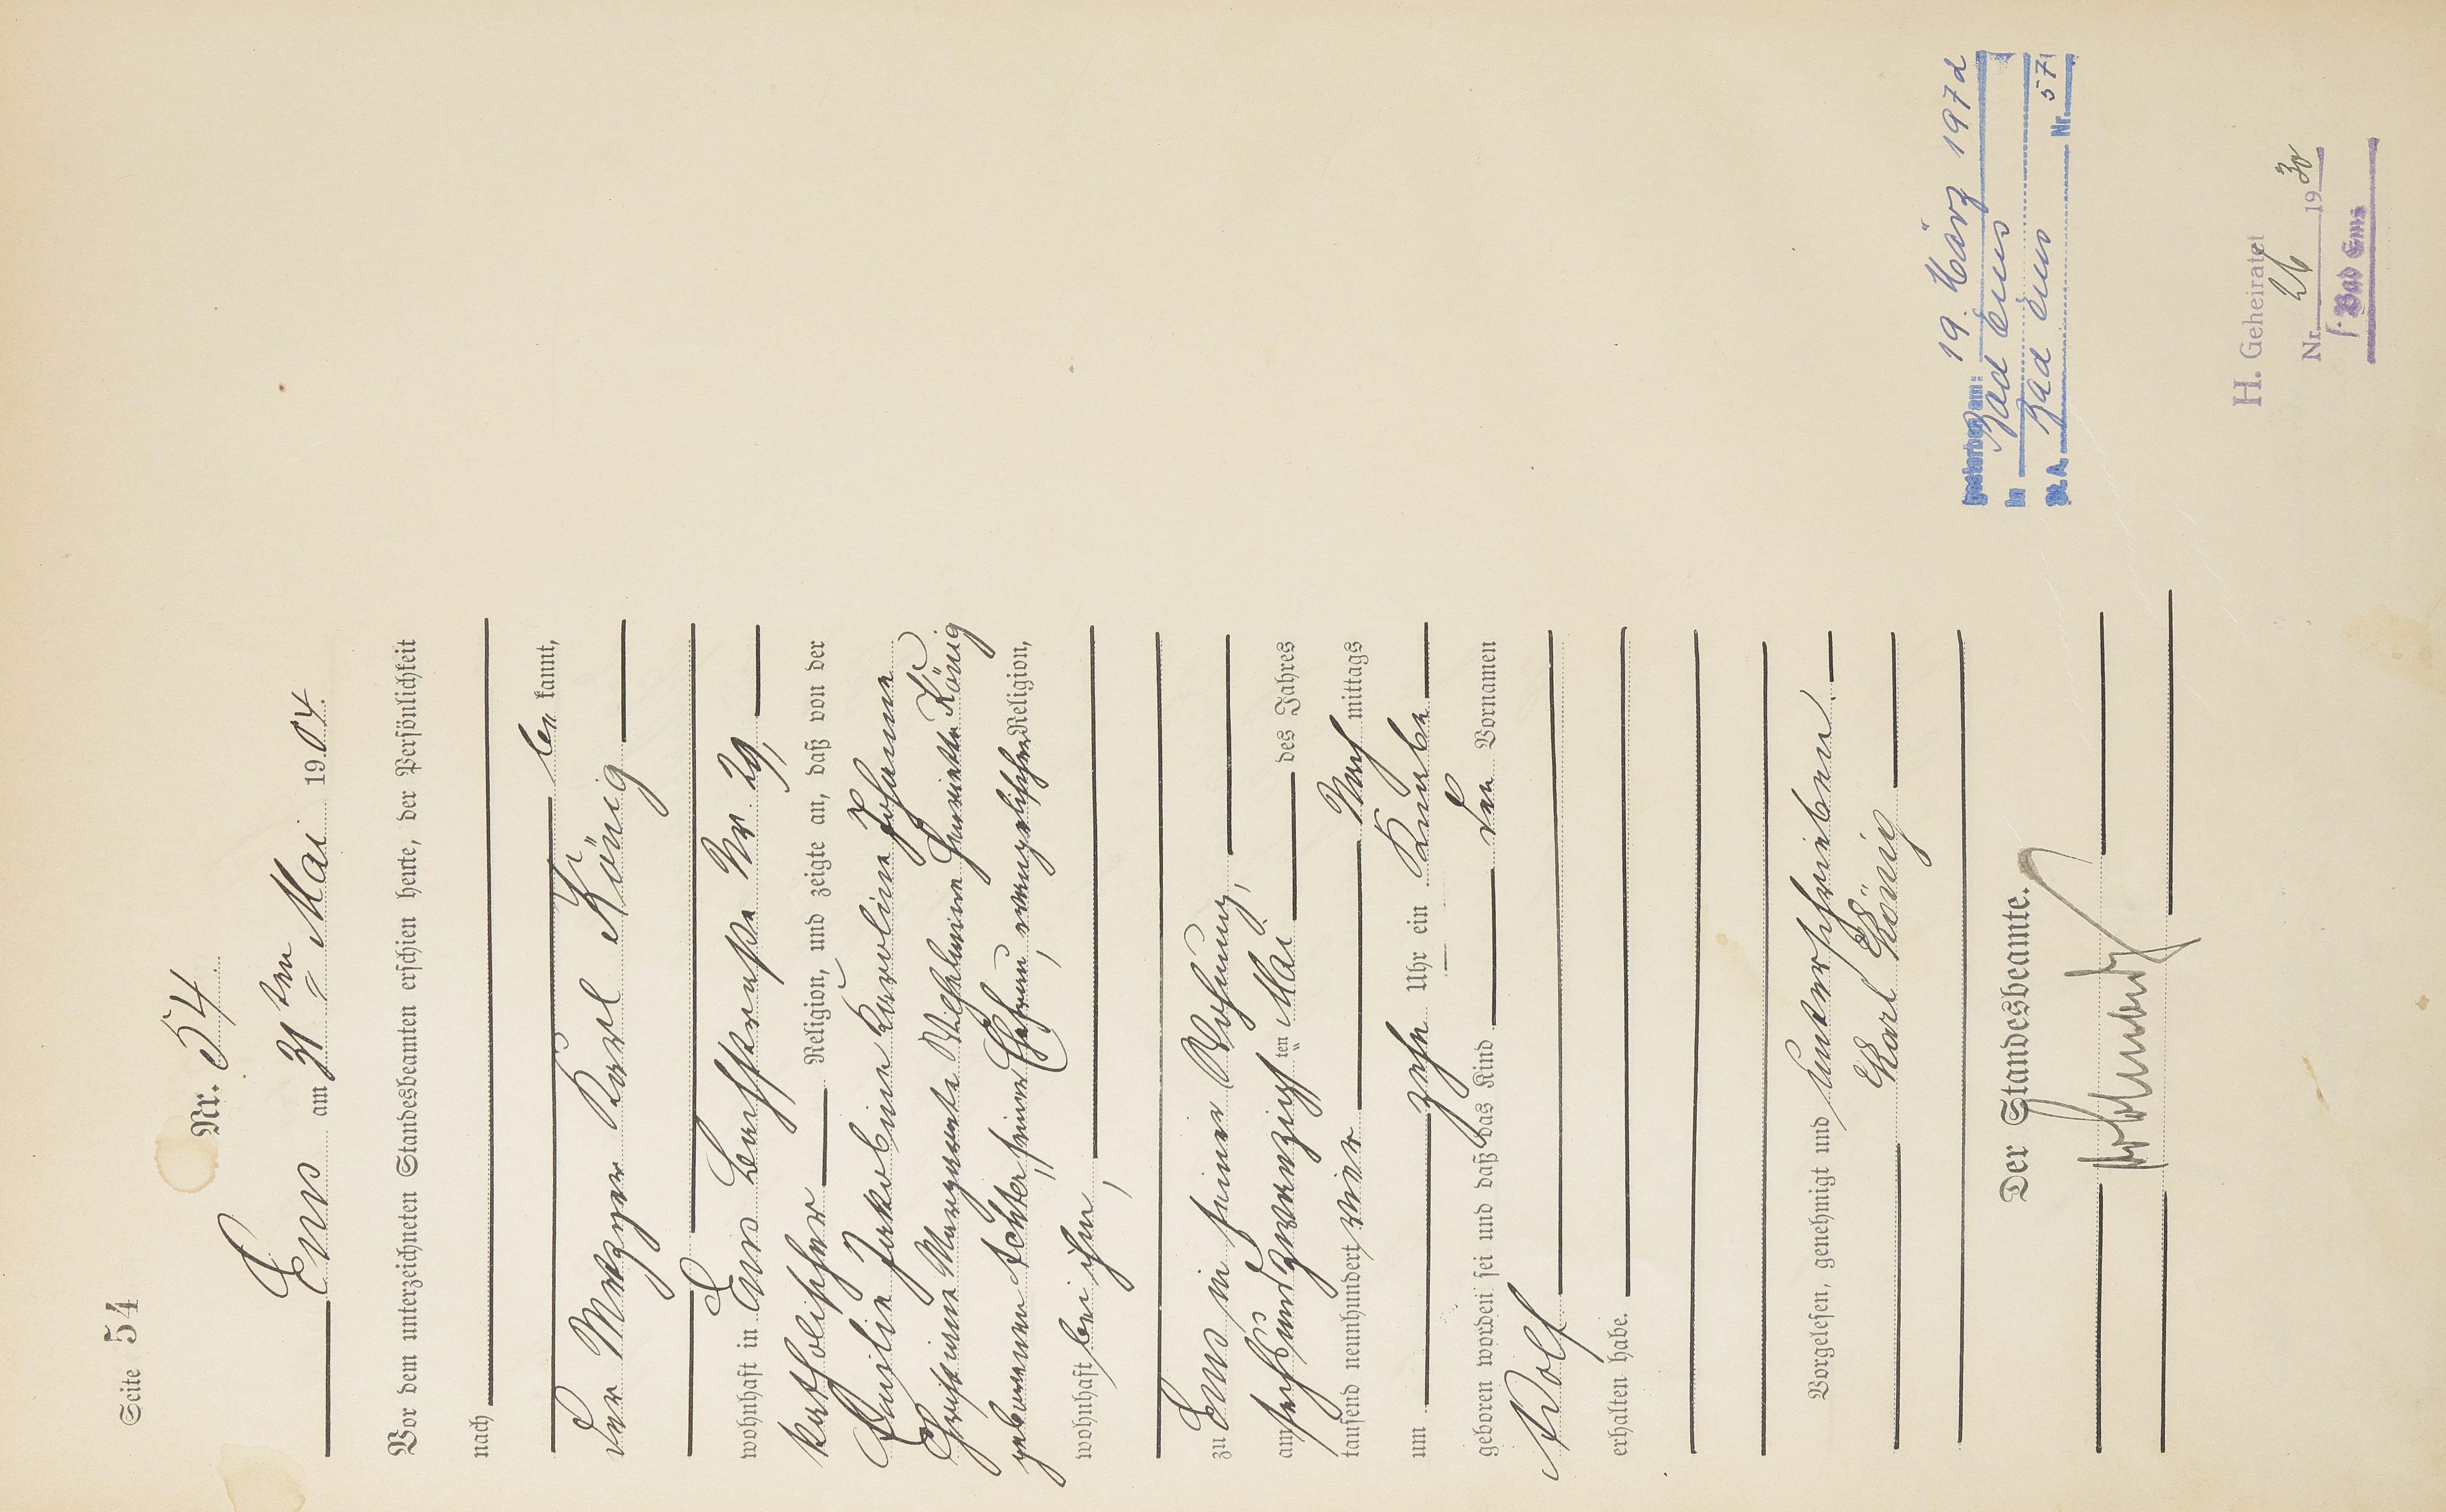 Seite 54
Nr. 54
Ems am 31ten Mai 1904
Vor dem unterzeichneten Standesbeamten erschien heute, der Persönlichkeit
nach
be kannt,
der Metzger Karl König
wohnhaft in Ems Bachstraße Nr. 29,
katholischer Religion, und zeigte an, daß von der
Emilie Jakobine Karoline Johanna
Christiane Margareta Wilhelmine Henriette König
geborenen Achter, seiner Ehefrau, evangelischer Religion,
wohnhaft bei ihm,
zu Ems in seiner Wohnung,
am sechsundzwanzigsten Mai des Jahres
tausend neunhundert vier Nach mittags
um zehn Uhr ein Knabe
geboren worden sei und daß das Kind den Vornamen
Adolf
erhalten habe.
Vorgelesen, genehmigt und unterschrieben
Karl König
Der Standesbeamte.
gestorben am: 19. März 1972
in Bad Ems
St. A. Bad Ems Nr. 57
H. Geheiratet
Nr. 26 1930
Bad Ems